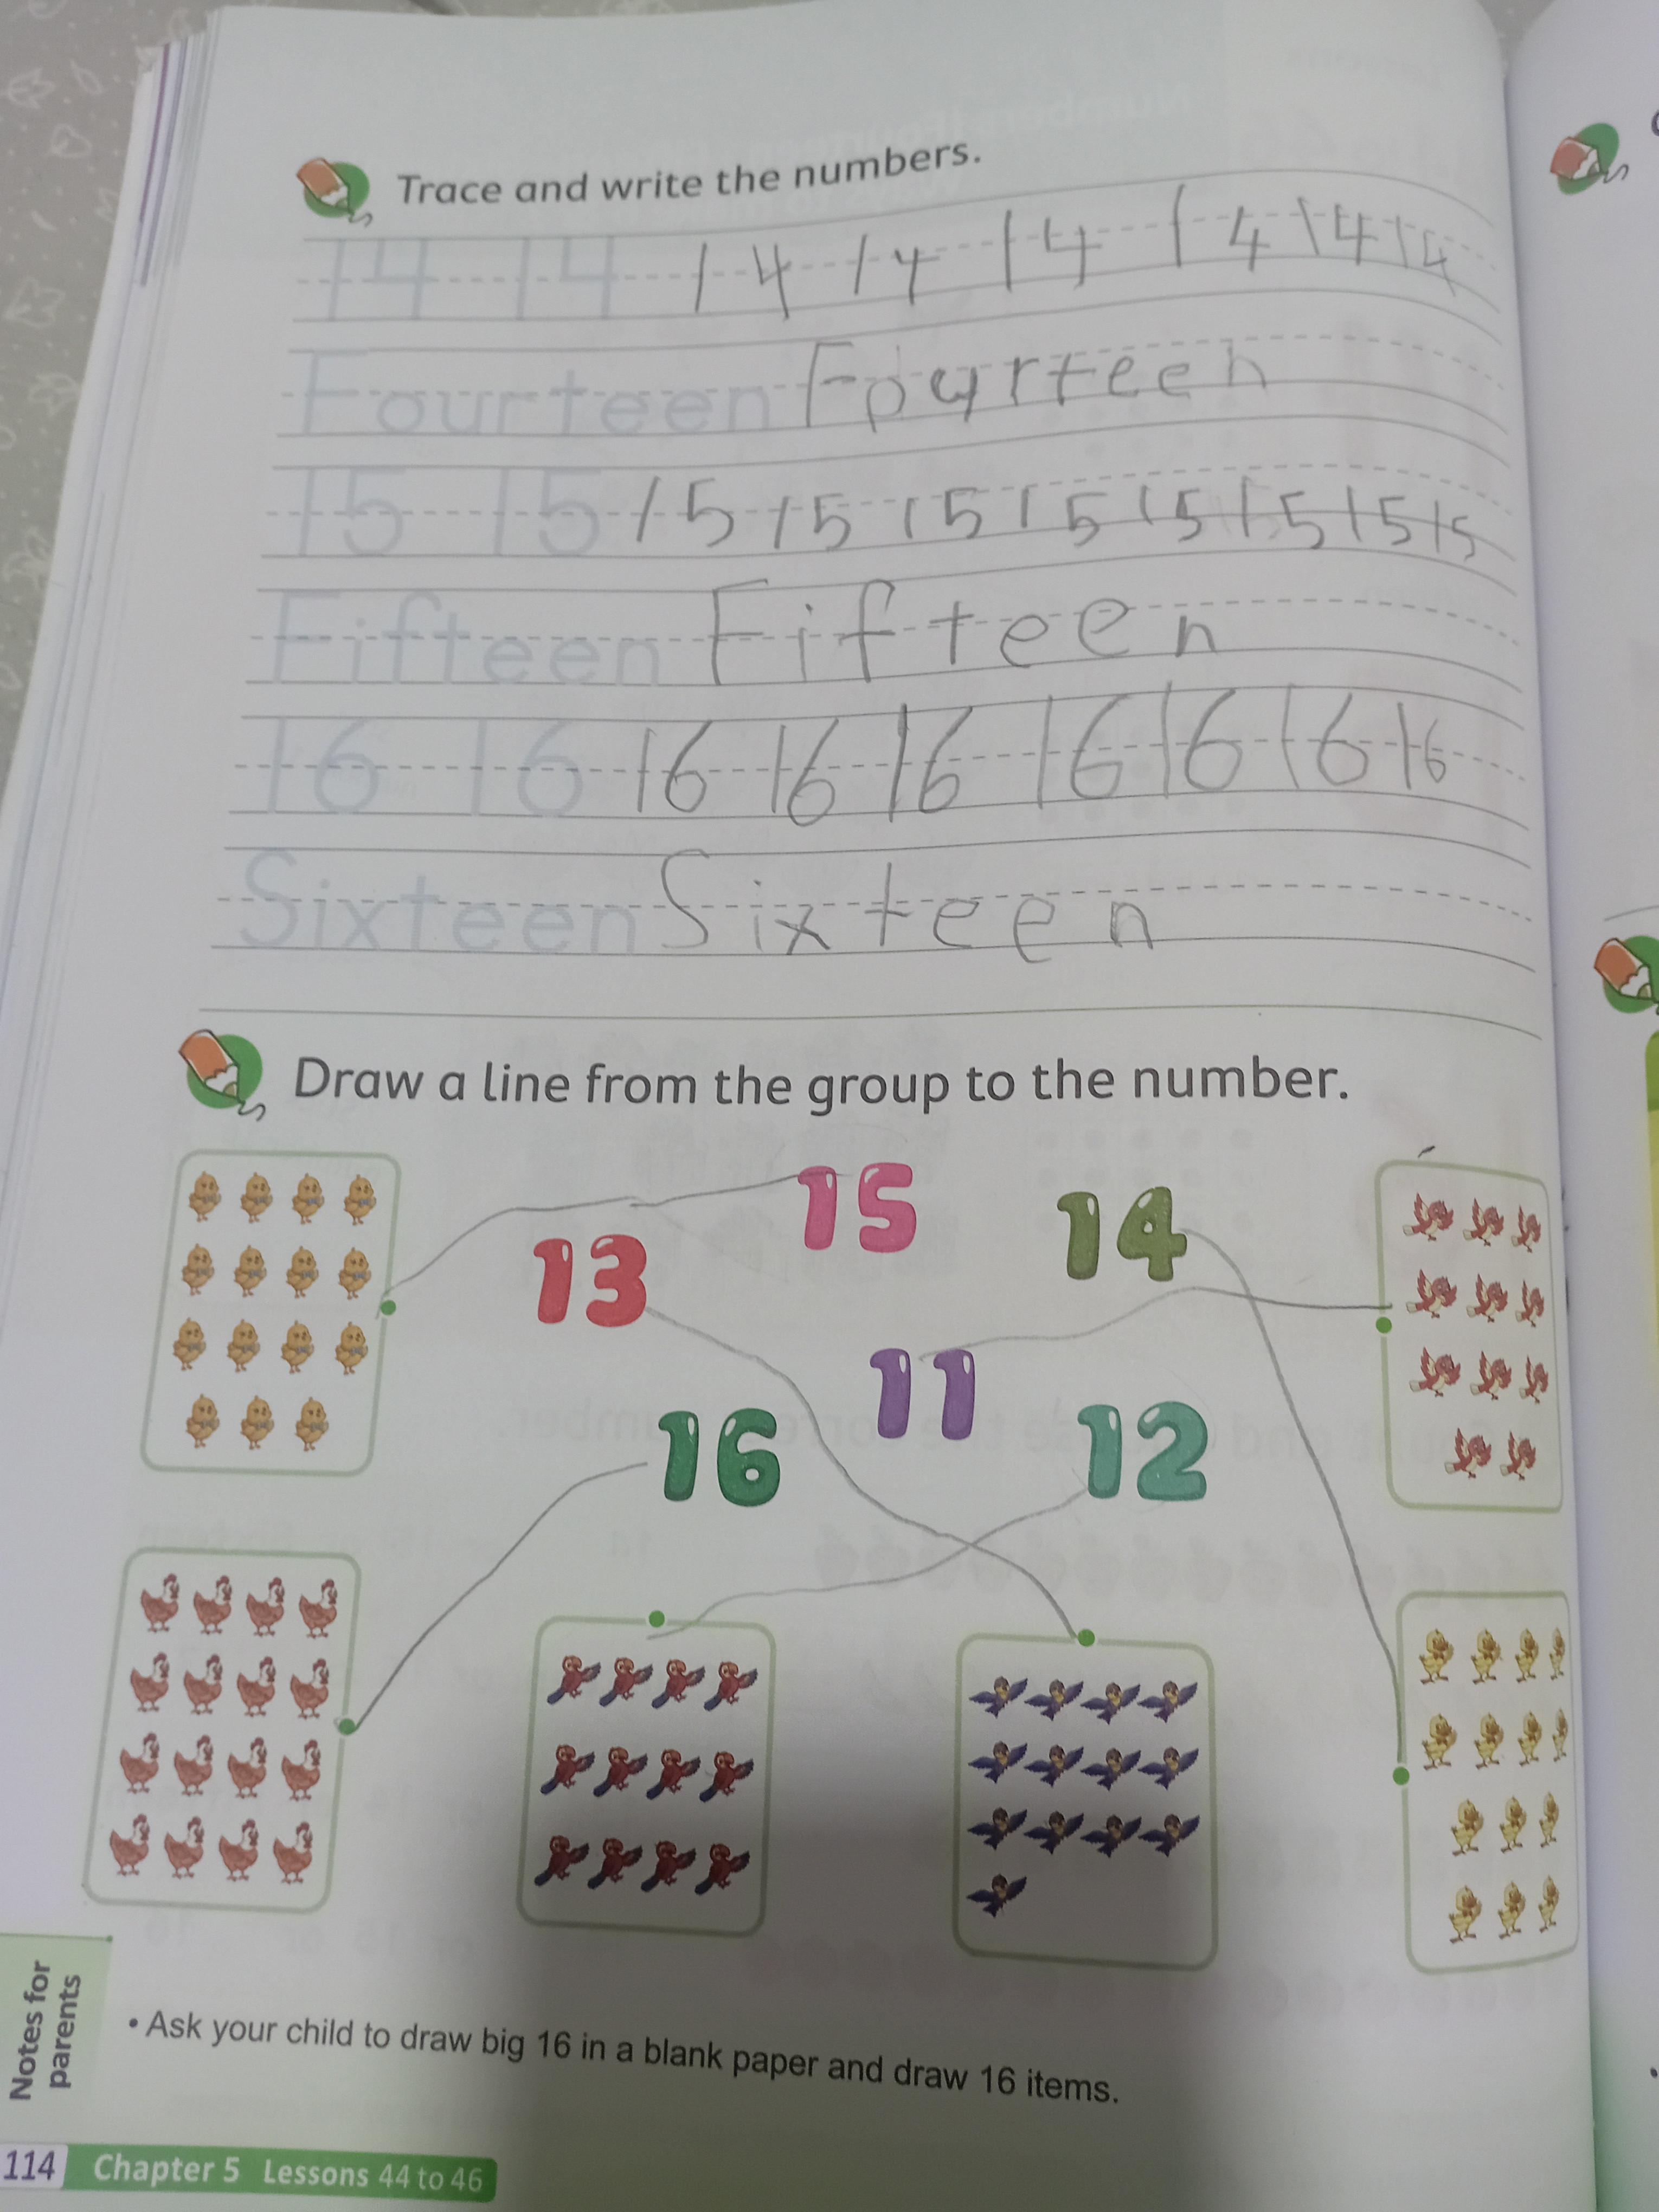 Trace and write the numbers.
14 14 14 14 14 14 14 14
Fourteen Fourteen
15 15 15 15 15 15 15 15 15 15
Fifteen Fifteen
16 16 16 16 16 16 16 16 16
Sixteen Sixteen
Draw a line from the group to the number.
15 14
13
11
16 12
Notes for parents
• Ask your child to draw big 16 in a blank paper and draw 16 items.
114 Chapter 5 Lessons 44 to 46